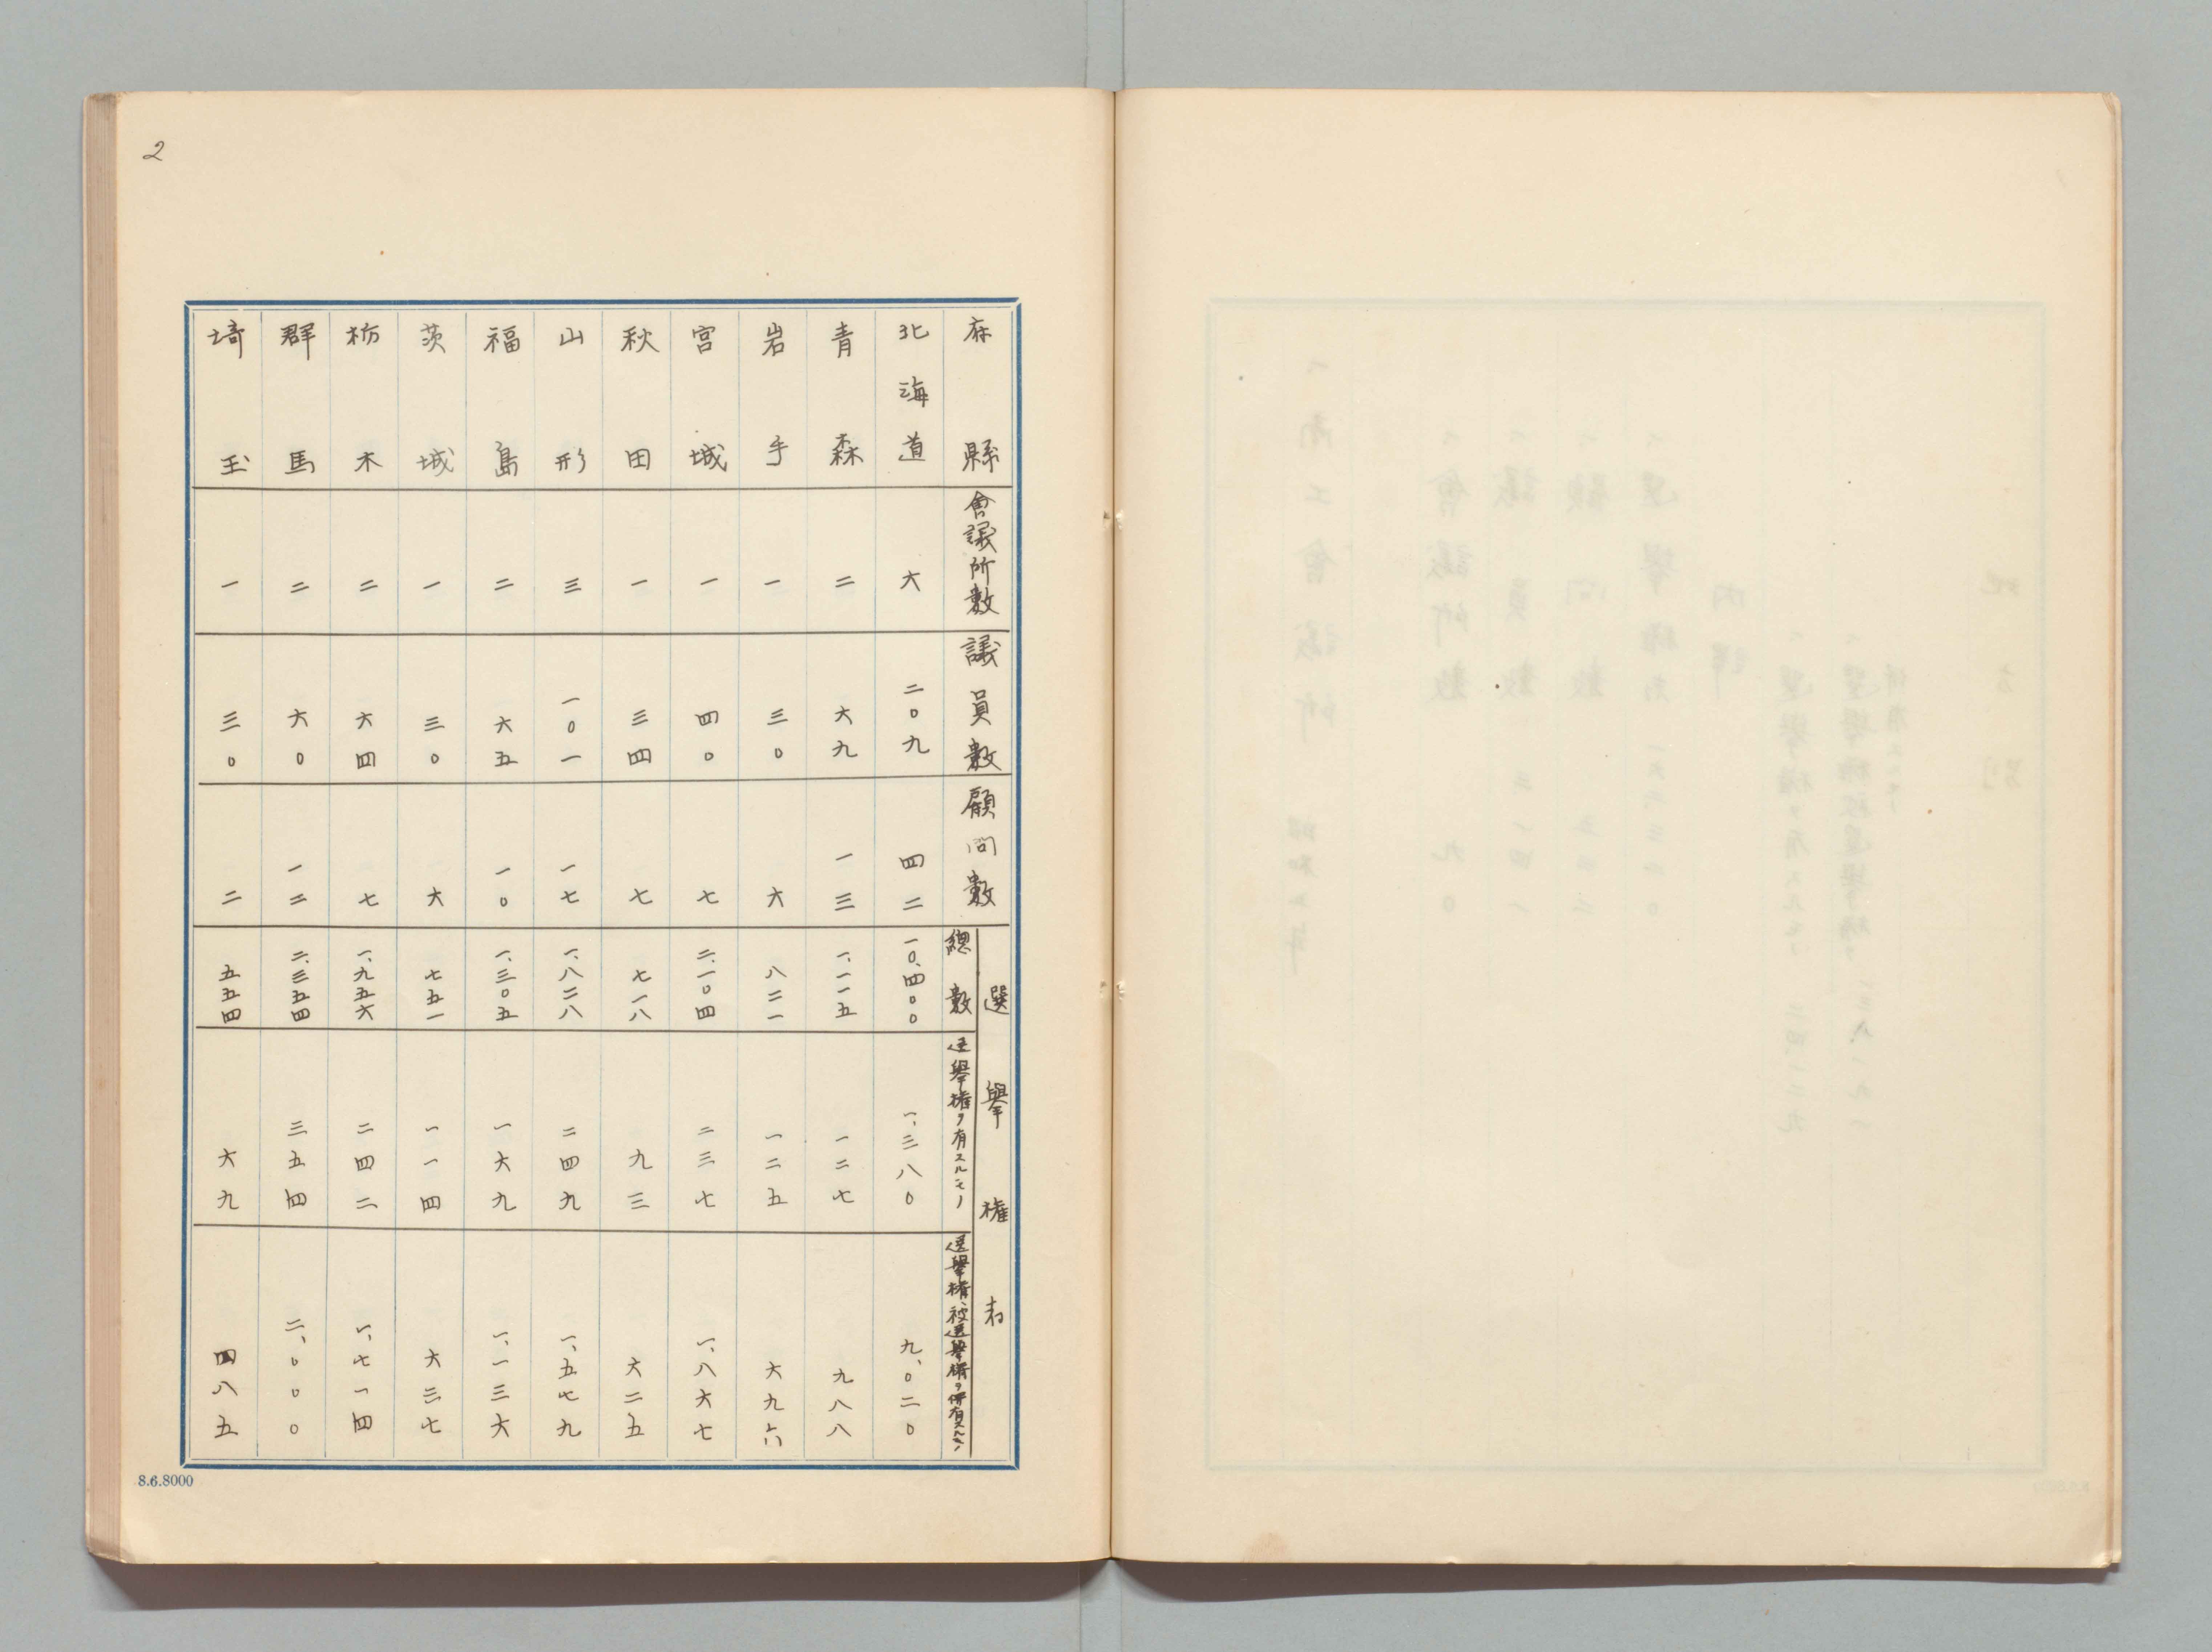 2
府縣 會議所數 議員數 顧問數 選擧權者
總數 選擧權ヲ有スルモノ 選擧權、被選擧權ヲ併有スルモノ
北海道 六 二〇九 四二 一〇、四〇〇 一、三八〇 九、〇二〇
青森 二 六九 一三 一、一一五 一二七 九八八
岩手 一 三〇 六 八二一 一二五 六九六
宮城 一 四〇 七 二、一〇四 二三七 一、八六七
秋田 一 三四 七 七一八 九三 六二五
山形 三 一〇一 一七 一、八二八 二四九 一、五七九
福島 二 六五 一〇 一、三〇五 一六九 一、一三六
茨城 一 三〇 六 七五一 一一四 六三七
栃木 二 六四 七 一、九五六 二四二 一、七一四
群馬 二 六〇 一二 二、三五四 三五四 二、〇〇〇
埼玉 一 三〇 二 五五四 六九 四八五
8.6.8000